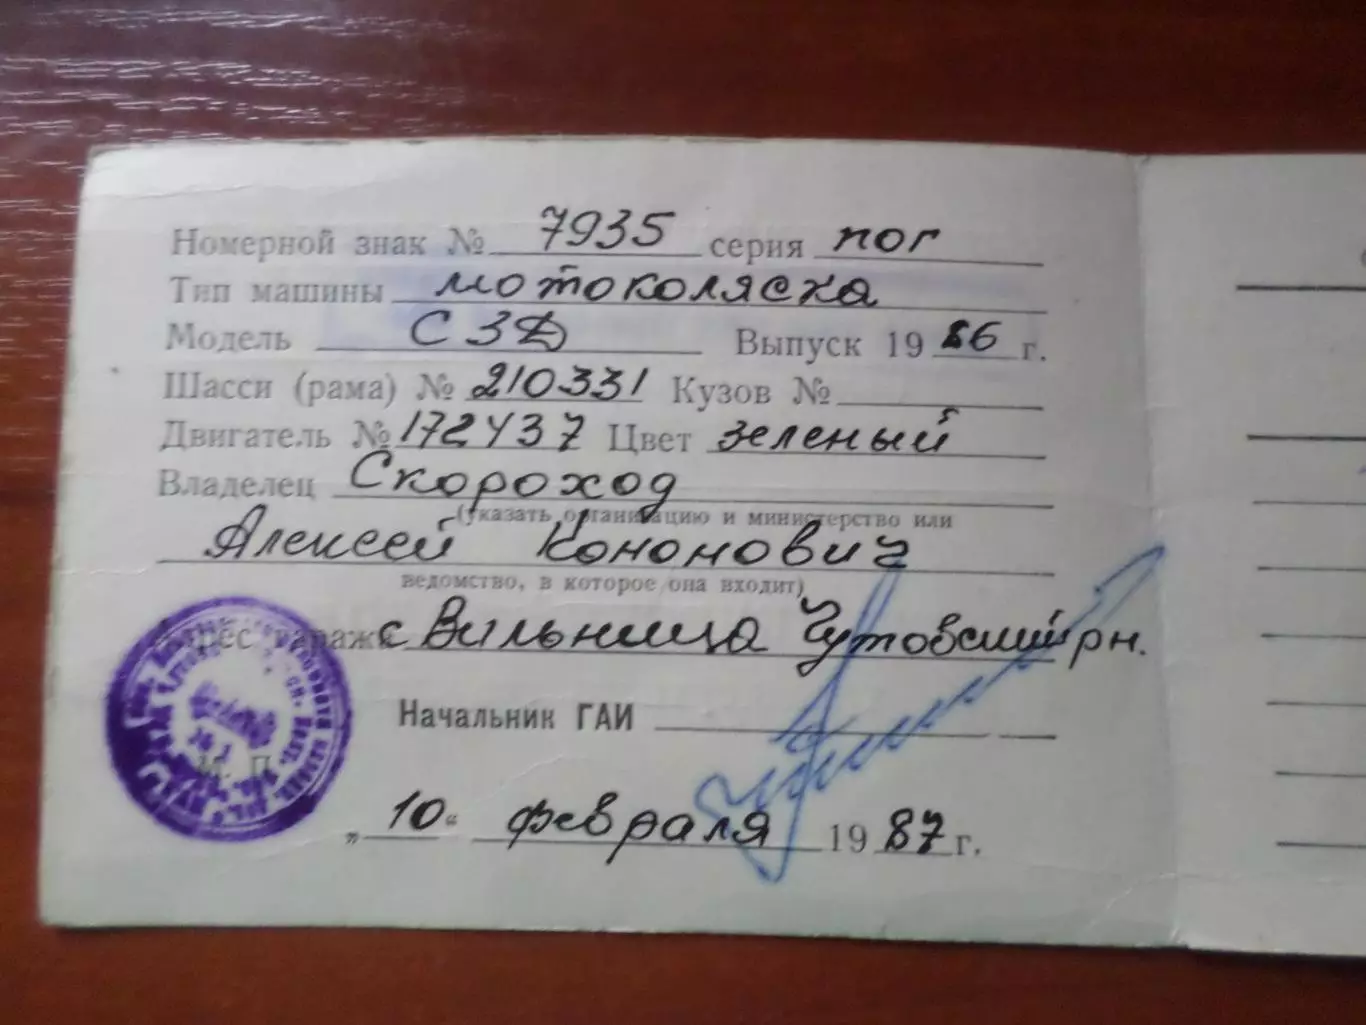 Номерной знак № 7935 серия пог
Тип машины мотоколяска
Модель СЗД Выпуск 1986 г.
Шасси (рама) № 210331 Кузов №
Двигатель № 172437 Цвет зеленый
Владелец Скороход
(указать организацию и министерство или
Алексей Кононович
ведомство, в которое она входит)
Адрес гаража с Вильница Чутовский рн.
Начальник ГАИ
М. П.
„10“ февраля 1987 г.